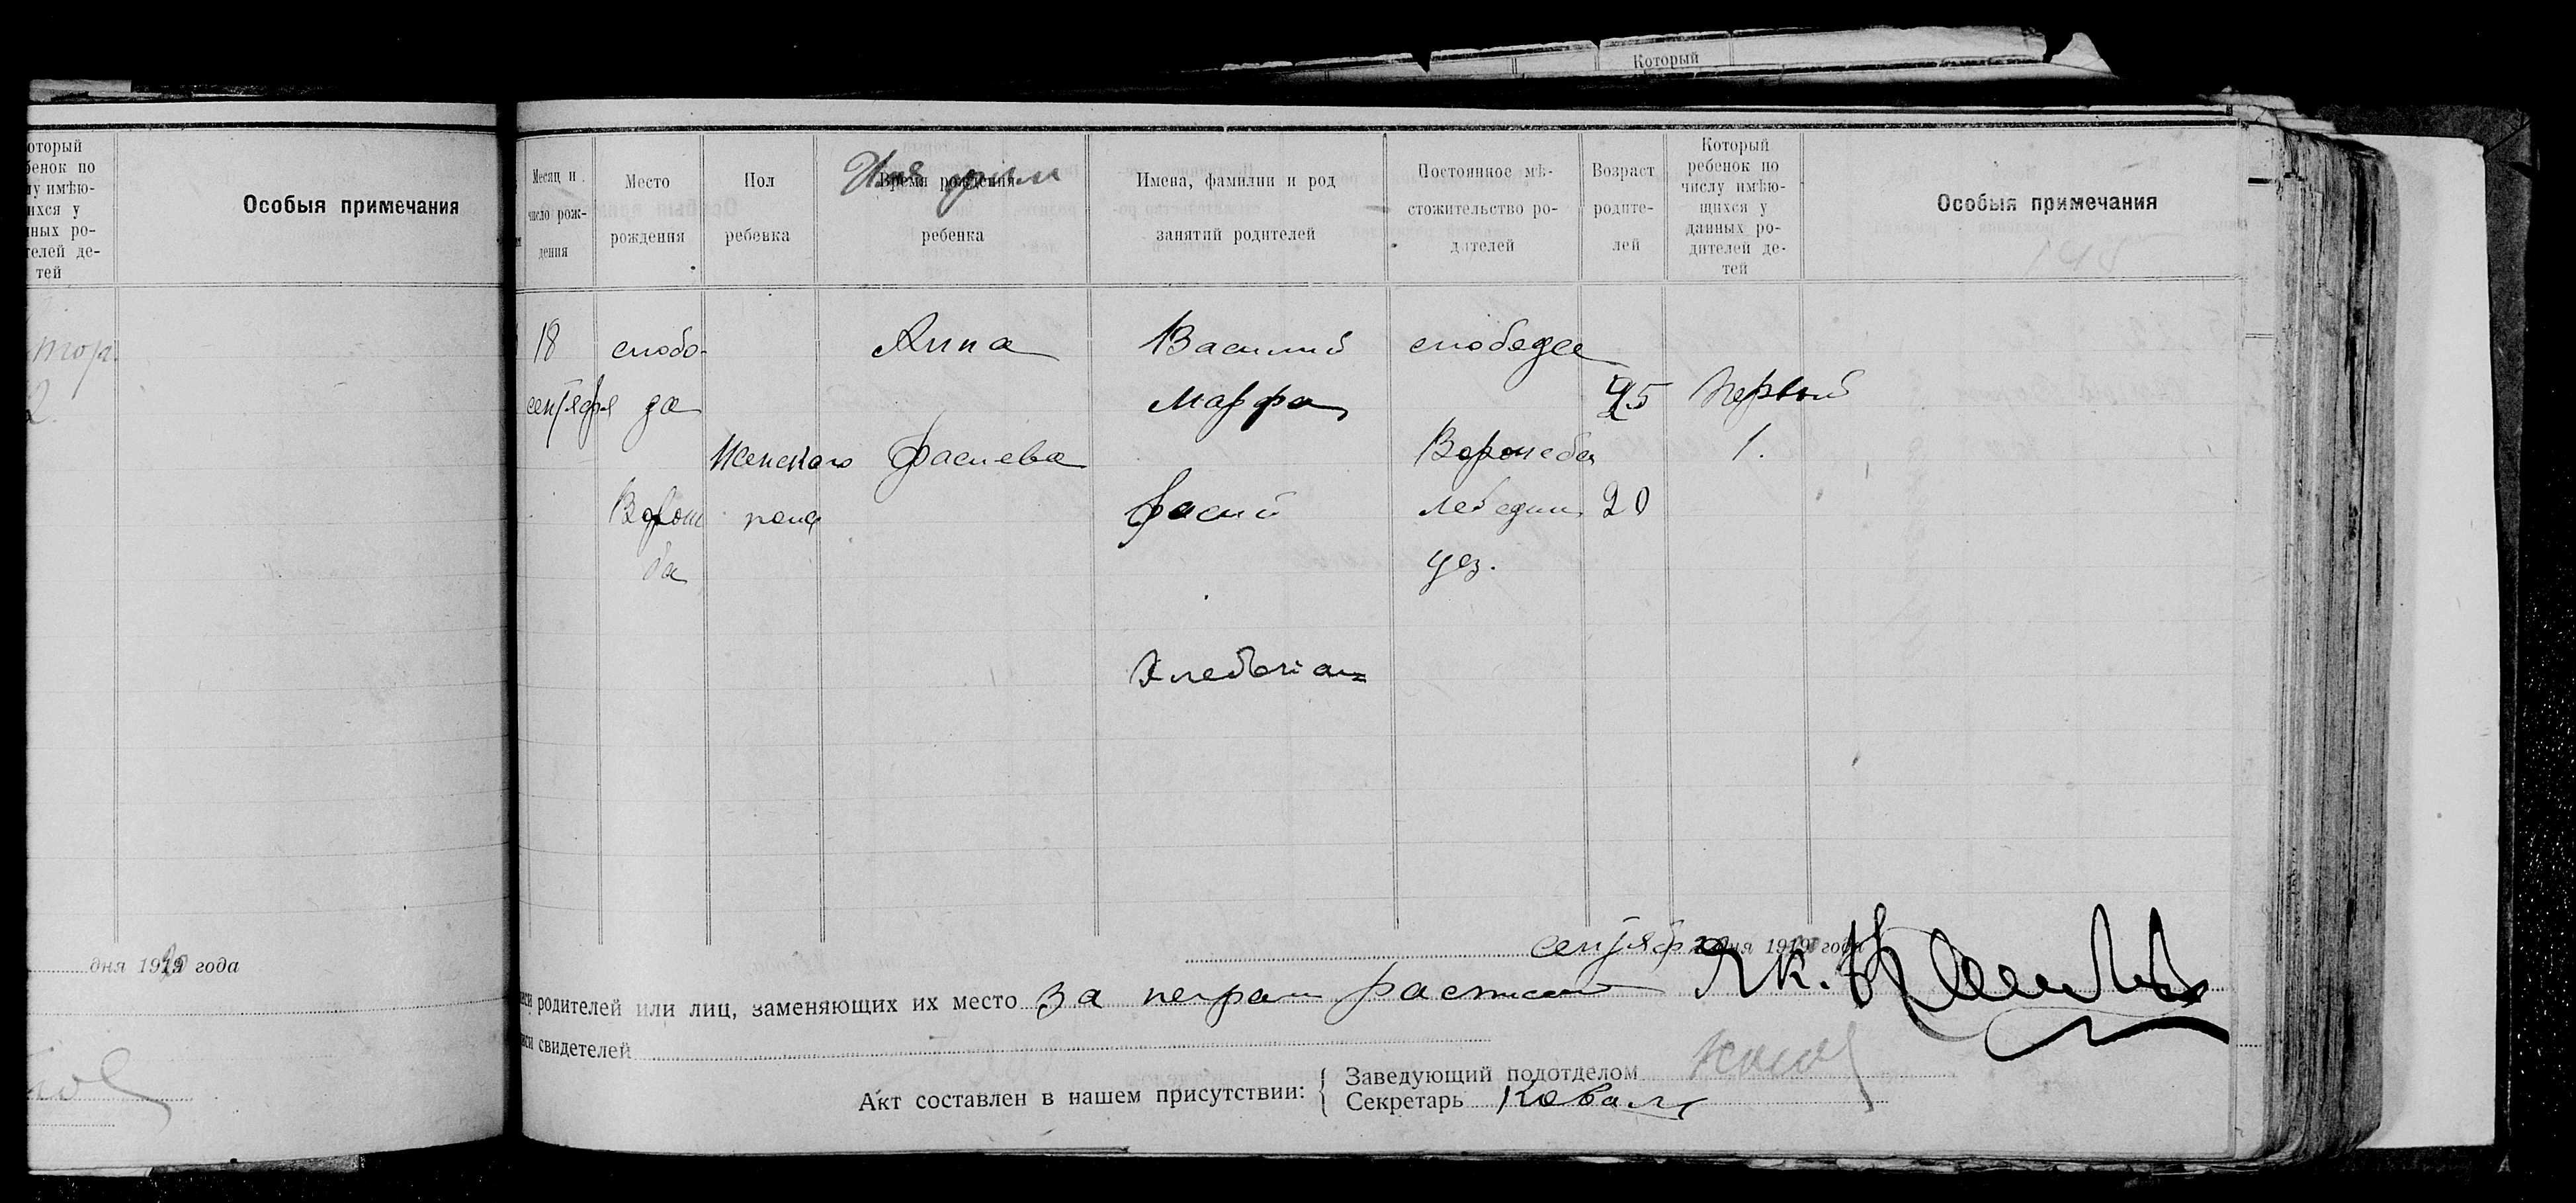 Который
оторый
бенок по
лу имѣю-
ихся у
нных ро-
телей де-
тей
Особыя примечания
втор.
2.
дня 1919 года
Месяц и
число рож-
дения
Место
рождения
Пол
ребенка
Имя
Время рождения
ребенка
Имена, фамилии и род
занятий родителей
Постоянное мѣ-
стожительство ро-
дителей
Возраст
родите-
лей
Который
ребенок по
числу имѣю-
щихся у
данных ро-
дителей де-
тей
Особыя примечания
18
сентября
слобо-
да
Ворож
ба
Женского
рода
Анна
Фасиева
Василий
Марфа
Фасий
Хлебопаш
слободе
Ворожба
Лебедин
уез.
25
20
Первый
1.
сентября дня 1919 года
родителей или лиц, заменяющих их место за неграм Як.
свидетелей
Акт составлен в нашем присутствии:
Заведующий подотделом
Секретарь Коваль